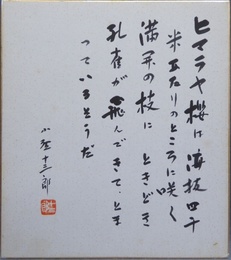 ヒマラヤ桜は海抜四千
米五たりのところに咲く
満開の枝に ときどき
孔雀が飛んできて、とま
っているそうだ
小野十三郎